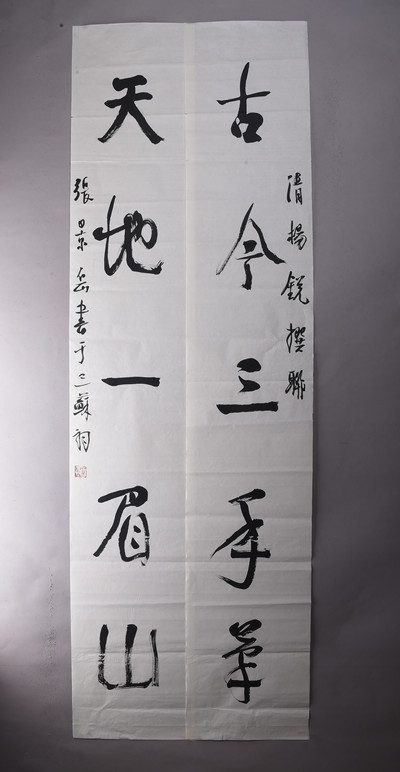 清楊銳撰聯
古今三手筆
天地一眉山
張景岳書于三蘇祠